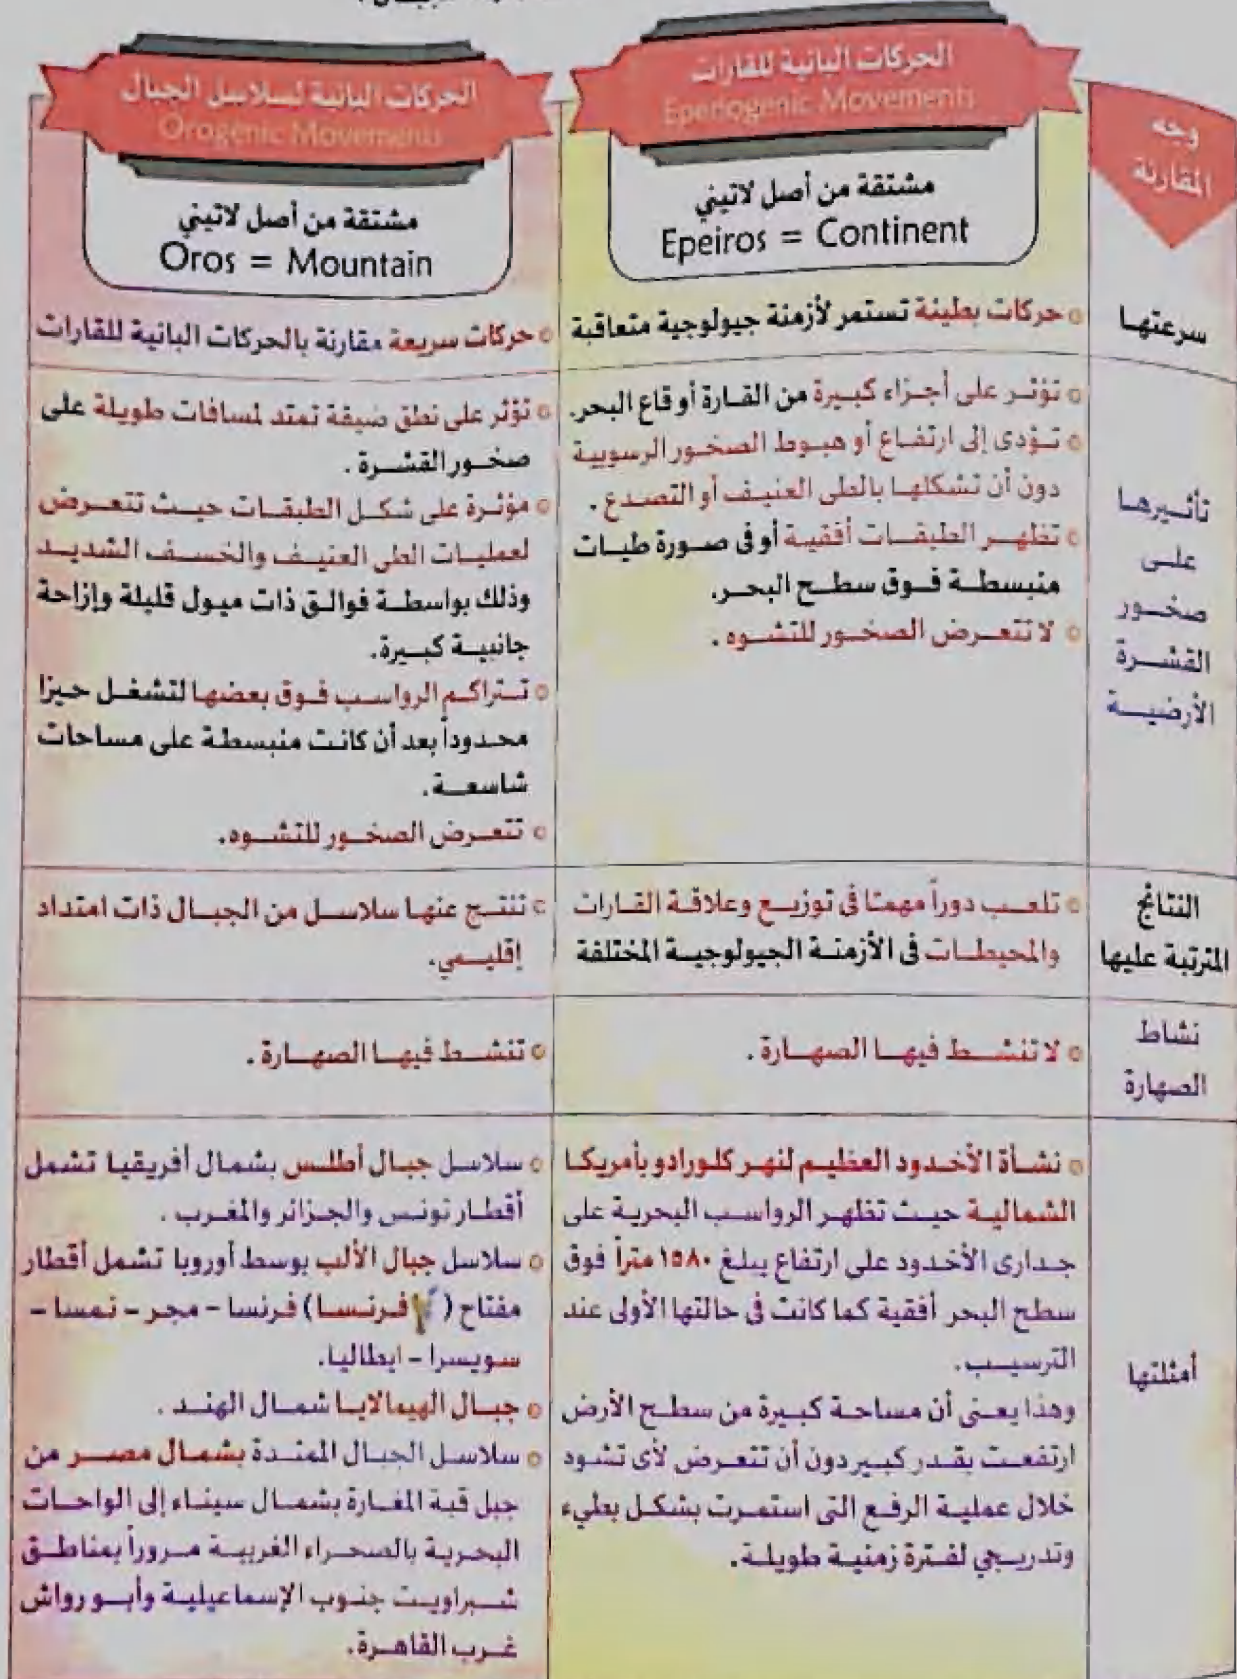 الحركات البانية للقارات
Eperiogenic Movements
مشتقة من أصل لاتيني
Epeiros = Continent
الحركات البانية لسلاسل الجبال
Orogenic Movements
مشتقة من أصل لاتيني
Oros = Mountain
وجه
المقارنة
سرعتها
حركات بطيئة تستمر لأزمنة جيولوجية متعاقبة
حركات سريعة مقارنة بالحركات البانية للقارات
تأثيرها
على
صخور
القشرة
الأرضية
تؤثر على أجزاء كبيرة من القارة أو قاع البحر.
تؤدى إلى ارتفاع أو هبوط الصخور الرسوبية
دون أن تشكلها بالطى العنيف أو التصدع.
تظهر الطبقات أفقية أو فى صورة طيات
منبسطة فوق سطح البحر.
لا تتعرض الصخور للتشوه.
تؤثر على نطق ضيقة تمتد لمسافات طويلة على
صخور القشرة.
مؤثرة على شكل الطبقات حيث تتعرض
لعمليات الطى العنيف والخسف الشديد
وذلك بواسطة فوالق ذات ميول قليلة وإزاحة
جانبية كبيرة.
تتراكم الرواسب فوق بعضها لتشغل حيزا
محدوداً بعد أن كانت منبسطة على مساحات
شاسعة.
تتعرض الصخور للتشوه.
النتائج
المترتبة عليها
تلعب دوراً مهمًا فى توزيع وعلاقة القارات
والمحيطات فى الأزمنة الجيولوجية المختلفة
تنتج عنها سلاسل من الجبال ذات امتداد
إقليمي.
نشاط
الصهارة
لا تنشط فيها الصهارة.
تنشط فيها الصهارة.
أمثلتها
نشأة الأخدود العظيم لنهر كلورادو بأمريكا
الشمالية حيث تظهر الرواسب البحرية على
جدارى الأخدود على ارتفاع يبلغ ١٥٨٠ متراً فوق
سطح البحر أفقية كما كانت فى حالتها الأولى عند
الترسيب.
وهذا يعنى أن مساحة كبيرة من سطح الأرض
ارتفعت بقدر كبير دون أن تتعرض لأى تشود
خلال عملية الرفع التى استمرت بشكل بطيء
وتدريجي لفترة زمنية طويلة.
سلاسل جبال أطلس بشمال أفريقيا تشمل
أقطار تونس والجزائر والمغرب.
سلاسل جبال الألب بوسط أوروبا تشمل أقطار
مفتاح ( فرنسا) فرنسا - مجر - نمسا -
سويسرا - ايطاليا.
جبال الهيمالايا شمال الهند.
سلاسل الجبال الممتدة بشمال مصر من
جبل قبة المغارة بشمال سيناء إلى الواحات
البحرية بالصحراء الغربية مروراً بمناطق
شبراويت جنوب الإسماعيلية وأبو رواش
غرب القاهرة.